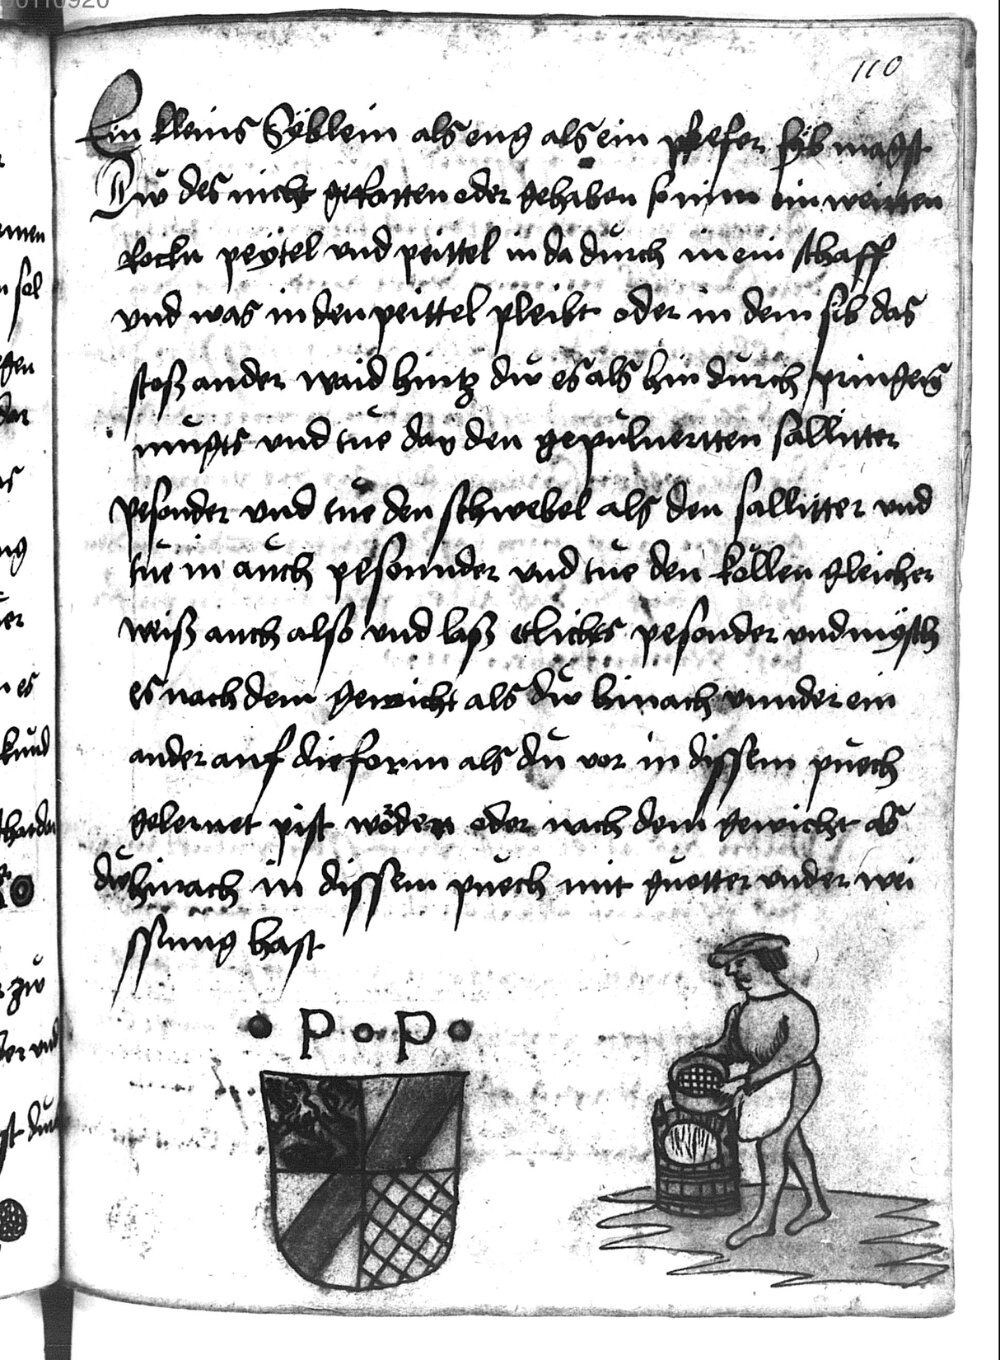 110
Ein kleins Syblein als eng als ein pfefer syb magst
Dw des nicht gehaben so nim ein weitten
peytel vnd peittel in da durch in ein schaff
vnd was in den peittel pleibt oder in dem sib das
stoß ander waid hintz dw es als hin durch pringen
mugst vnd tue dan den gepuluertten sallitter
pesonder vnd tue den schwebel als den sallitter vnd
tue in auch pesonnder vnd tue den kollen gleicher
weiß auch also vnd laß etlichs pesonder vnd mysch
es nach dem gewicht als dw hinach vnnder ein
ander auf die form als du vor in dissem puech
gelernet pist wörden oder nach dem gewicht als
dw hinach in dissem puech mit guetter vnder wei
ssung hast
P P